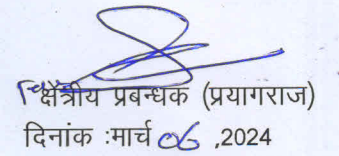 क्षैत्रीय प्रबन्धक (प्रयागराज)
दिनांक :मार्च 06 ,2024